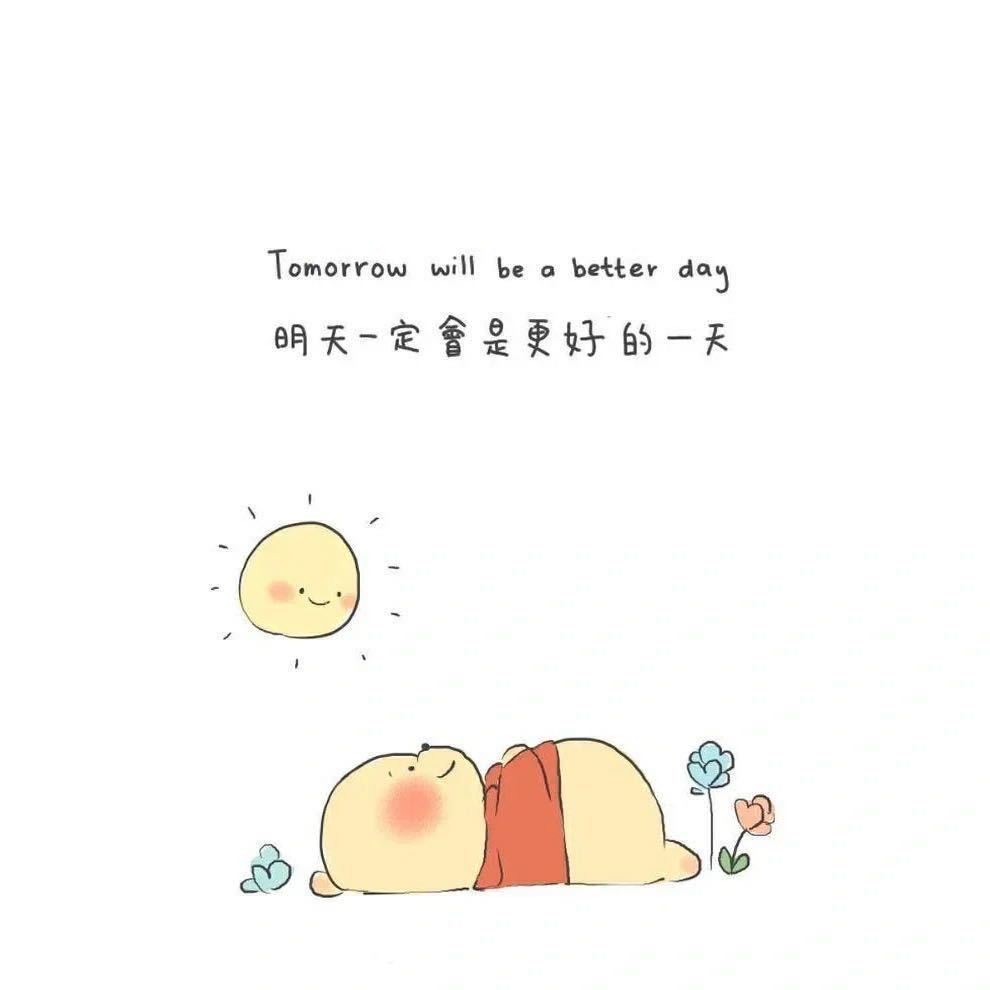 Tomorrow will be a better day
明天一定會是更好的一天